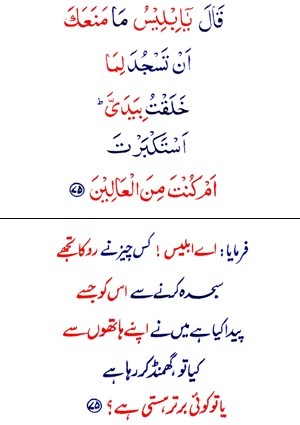 قَالَ يٰۤاِبْلِيْسُ مَا مَنَعَكَ
اَنْ تَسْجُدَ لِمَا
خَلَقْتُ بِيَدَىَّ ؕ
اَسْتَكْبَرْتَ
اَمْ كُنْتَ مِنَ الْعَالِيْنَ ﴿۷۵﴾
فرمایا: اے ابلیس ! کس چیز نے روکا تجھے
سجدہ کرنے سے اس کو جسے
پیدا کیا ہے میں نے اپنے ہاتھوں سے
کیا تو ، گھمنڈ کر رہا ہے
یا تو کوئی برتر ہستی ہے ؟ ﴿۷۵﴾